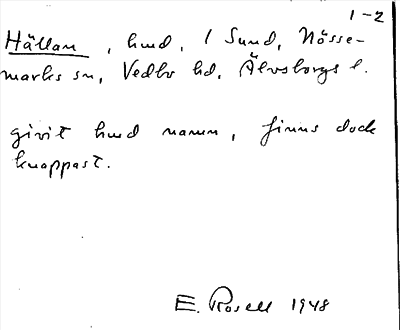 1-2
Hällan, hmd, / Sund, Nösse-
marks sn, Vedbo hd, Älvsborgs l.
givit hmd namn, finns dock
knappast.
E. Rosell 1948